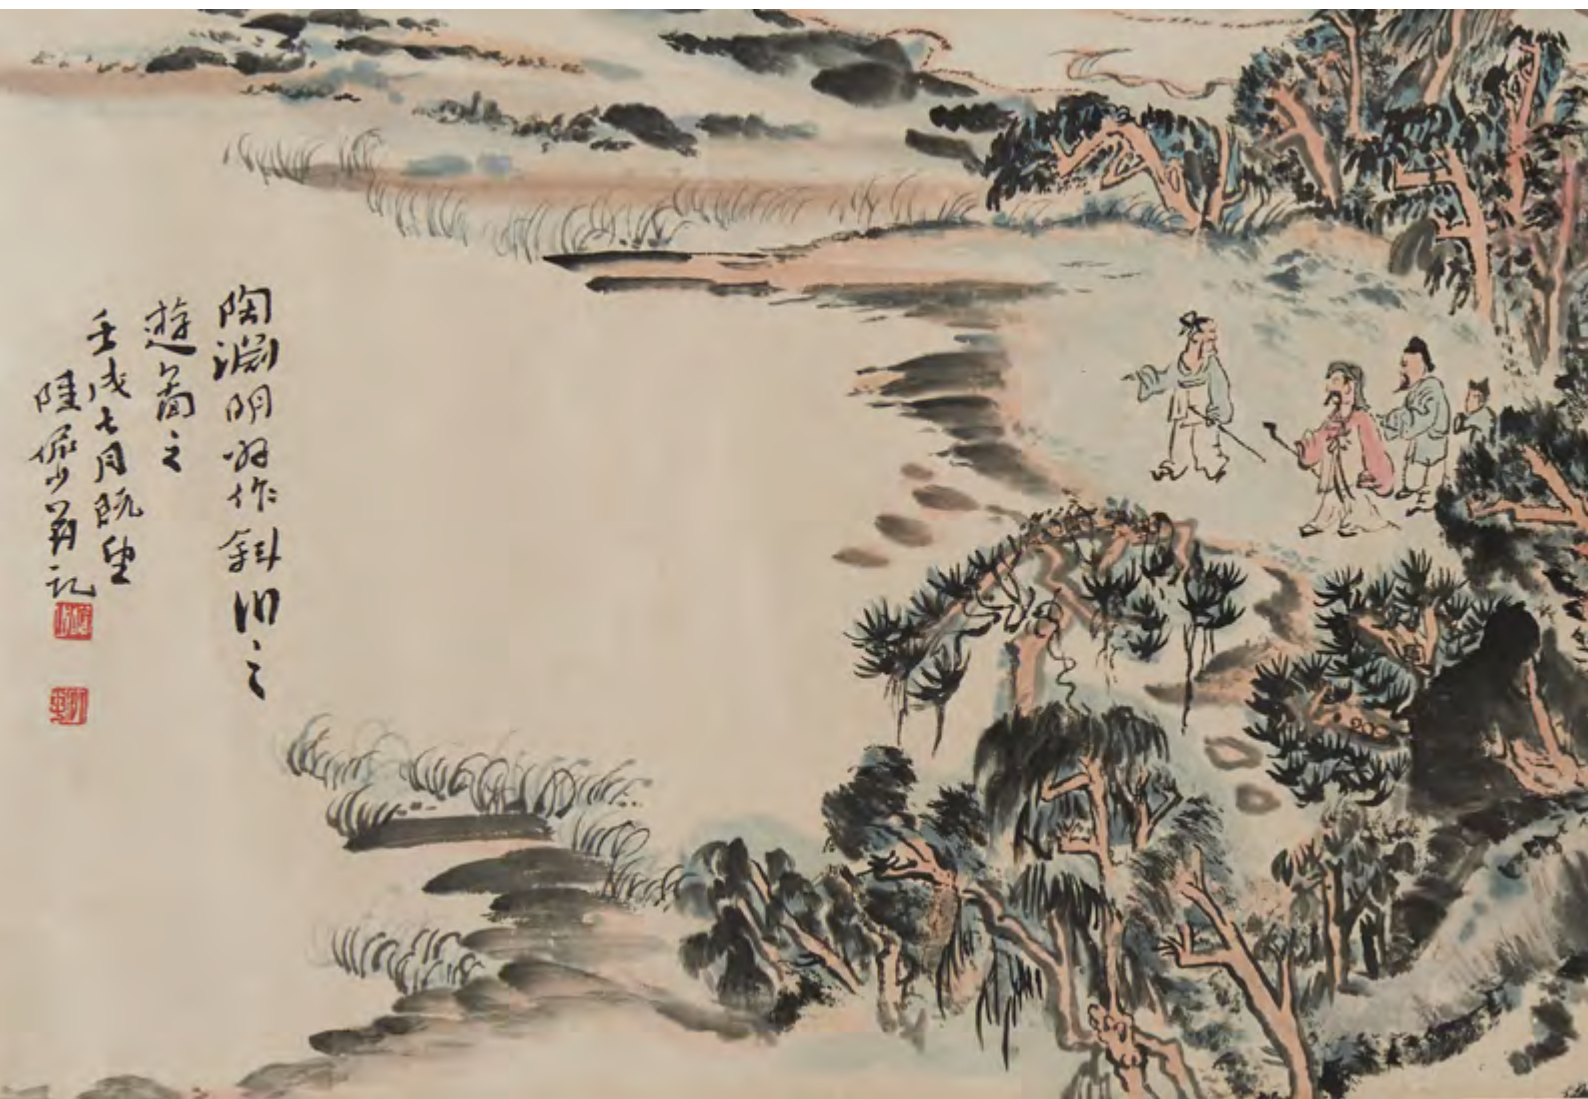 陶淵明作斜川之
遊圖之
壬戌七月既望
陸儼少并記